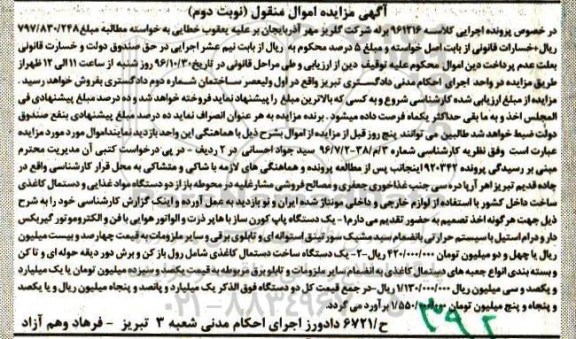 آگهی مزایده اموال منقول (نوبت دوم)
در خصوص پرونده اجرایی کلاسه ۹۶۱۳۱۶ برله شرکت گلریز مهر آذربایجان بر علیه یعقوب خطایی به خواسته مطالبه مبلغ ۷۹۷/۸۳۰/۲۴۸
ریال+خسارات قانونی از بابت اصل خواسته و مبلغ ۵ درصد محکوم به ریال از بابت نیم عشر اجرایی در حق صندوق دولت و خسارت قانونی
بعلت عدم پرداخت دین اموال محکوم علیه توقیف دین از ارزیابی و طی مراحل قانونی در تاریخ ۹۶/۱۰/۳۰ روز شنبه از ساعت ۱۱ الی ۱۲ ظهر از
طریق مزایده در واحد اجرای احکام مدنی دادگستری تبریز واقع در اول ولیعصر ساختمان شماره دوم دادگستری بفروش خواهد رسید.
مزایده از مبلغ ارزیابی شده کارشناسی شروع و به کسی که بالاترین مبلغ را پیشنهاد نماید فروخته خواهد شد و ده درصد مبلغ پیشنهادی فی
المجلس اخذ و به ما بقی حداکثر یکماه فرصت داده میشود. برنده مزایده به هر عنوان انصراف نماید ده درصد مبلغ پیشنهادی بنفع صندوق
دولت ضبط خواهد شد طالبین می توانند پنج روز قبل از مزایده از اموال بشرح ذیل با هماهنگی این واحد بازدید نمایند اموال مورد مورد مزایده
عبارت است وفق نظریه کارشناسی شماره ۳/م/۳۸-۹۶/۷/۲ سید جواد احسانی در ۲ ردیف - در پی درخواست کتبی آن مدیریت محترم
مبنی بر رسیدگی پرونده ۹۲۰۳۴۲ اینجانب پس از مطالعه پرونده و هماهنگی های لازمه با شاکی و متشاکی به محل قرار کارشناسی واقع در
جاده قدیم تبریز اهر آرپا دره سی جنب غذاخوری جعفری و مصالح فروشی مشارغلیه در محوطه باز از دو دستگاه مواد غذایی و دستمال کاغذی
ساخت داخل کشور با استفاده از لوازم خارجی و داخلی مونتاژ شده ایران و نو بازدید به عمل آورده و اینک گزارش کارشناسی خود را به شرح
ذیل جهت هرگونه اخذ تصمیم به حضور تقدیم می دارم ۱- یک دستگاه پاپ کورن ساز با هاپر ذرت و الواتور هوایی با فن و الکتروموتور گیربکس
دار و درام استیل با سیستم حرارتی بانضمام سید مشبک سورتینق استوانه ای و تابلوی برقی و سایر ملزومات به قیمت چهارصد و بیست میلیون
ریال یا چهل و دو میلیون تومان ۴۲۰/۰۰۰/۰۰۰ ریال-۲- یک دستگاه ساخت دستمال کاغذی شامل رول باز کن و برش دور دیقه حوله ای و تا کن
و بسته بندی انواع جعبه های دستمال کاغذی به انضمام سایر ملزومات و تابلو برق مربوطه به قیمت یکصد و سیزده میلیون تومان یا یک میلیارد
و یکصد و سی میلیون ریال ۱/۱۳۰/۰۰۰/۰۰۰ ریال-در جمع قیمت کل دو دستگاه فوق الذکر یک میلیارد و پانصد و پنجاه میلیون ریال و یا یکصد
و پنجاه و پنج میلیون تومان ۱/۵۵۰/۰۰۰/۰۰۰ برآورد می گردد.
ح/۶۷۲۱ دادورز اجرای احکام مدنی شعبه ۳ تبریز - فرهاد وهم آزاد
۰۲۱-۸۸۳۴۹۶۷۰-۵